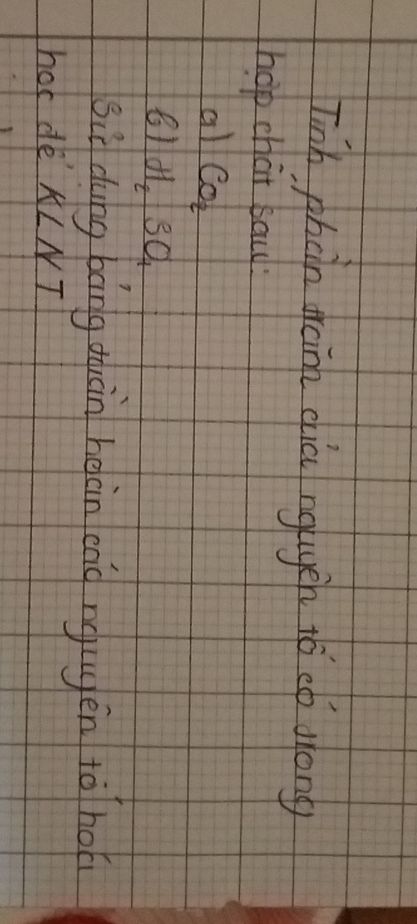 Tính phần trăm của nguyên tố có trong
hợp chất sau:
a) CO₂
b) H₂ SO₄
Sử dụng bảng tuần hoàn các nguyên tố hóa
học để KLNT